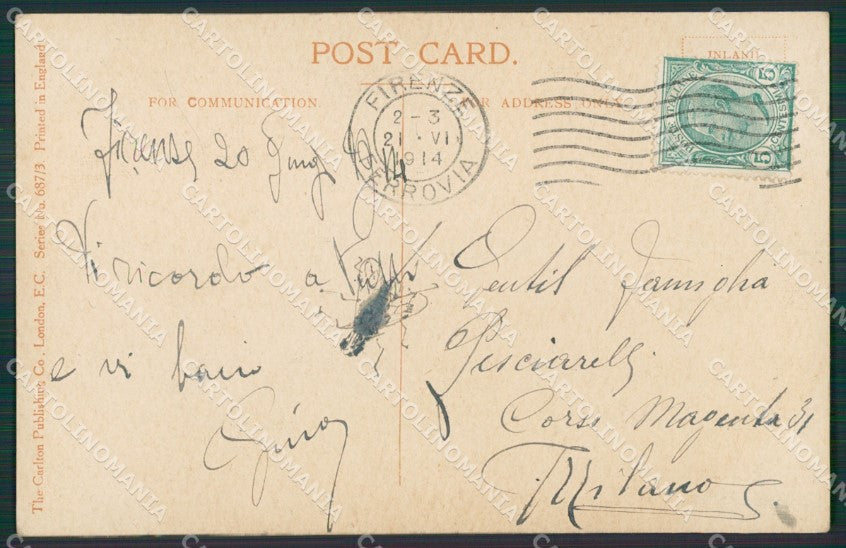 POST CARD.
INLAND
FOR COMMUNICATION.
FOR ADDRESS ONLY
FIRENZE
2-3
21·VI
1914
FERROVIA
5 5
Firenze 20 Giug 914
Vi ricordo a tutti
e vi bacio
Gina
Gentil Famiglia
Pesciarelli
Corso Magenta 31
Milano
The Carlton Publishing Co., London, E.C. Series No. 687/3 Printed in England
CARTOLINOMANIA